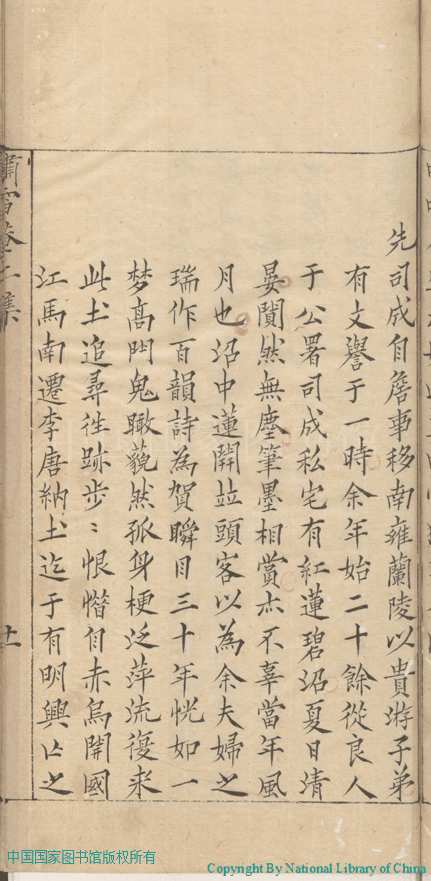 先司成自詹事移南雍蘭陵以貴游子弟
有文譽于一時余年始二十餘從良人
于公署司成私宅有紅蓮碧沼夏日清
晏闃然無塵筆墨相賞亦不辜當年風
月也沼中蓮開並頭客以為余夫婦之
瑞作百韻詩為賀瞬目三十年恍如一
梦髙門鬼瞰藐然孤身梗泛萍流復来
此土追尋徃跡步〻恨憯自赤烏開國
江馬南遷李唐納土迄于有明興亡之
嘯雪菴二集
十一
中国国家图书馆版权所有
Copyright By National Library of China